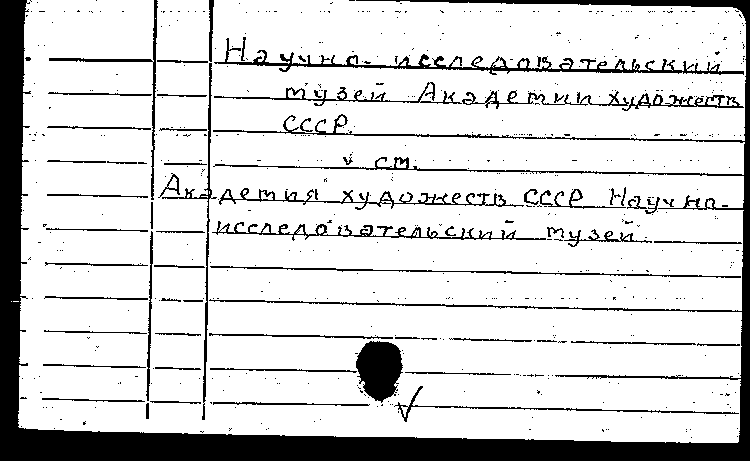 Научно-исследовательский
музей Академии художеств
СССР.
см.
Академия художеств СССР Научно-
исследовательский музей